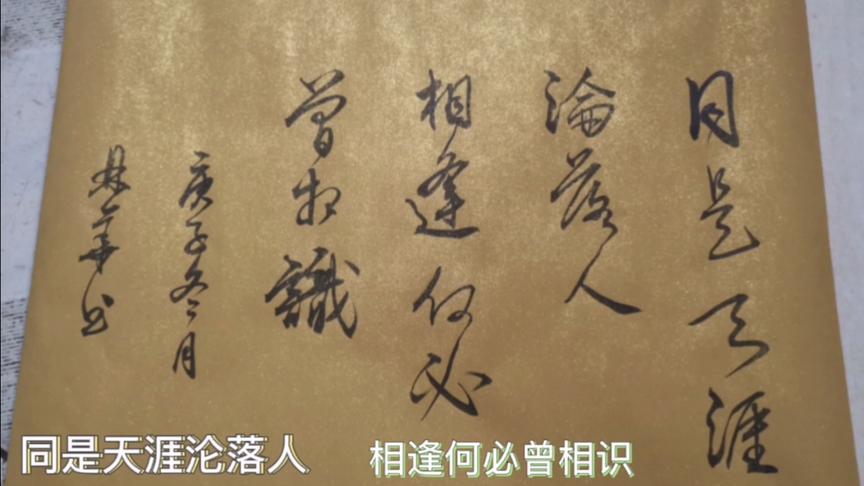 同是天涯
淪落人
相逢何必
曾相識
庚子冬月
華书
同是天涯沦落人
相逢何必曾相识